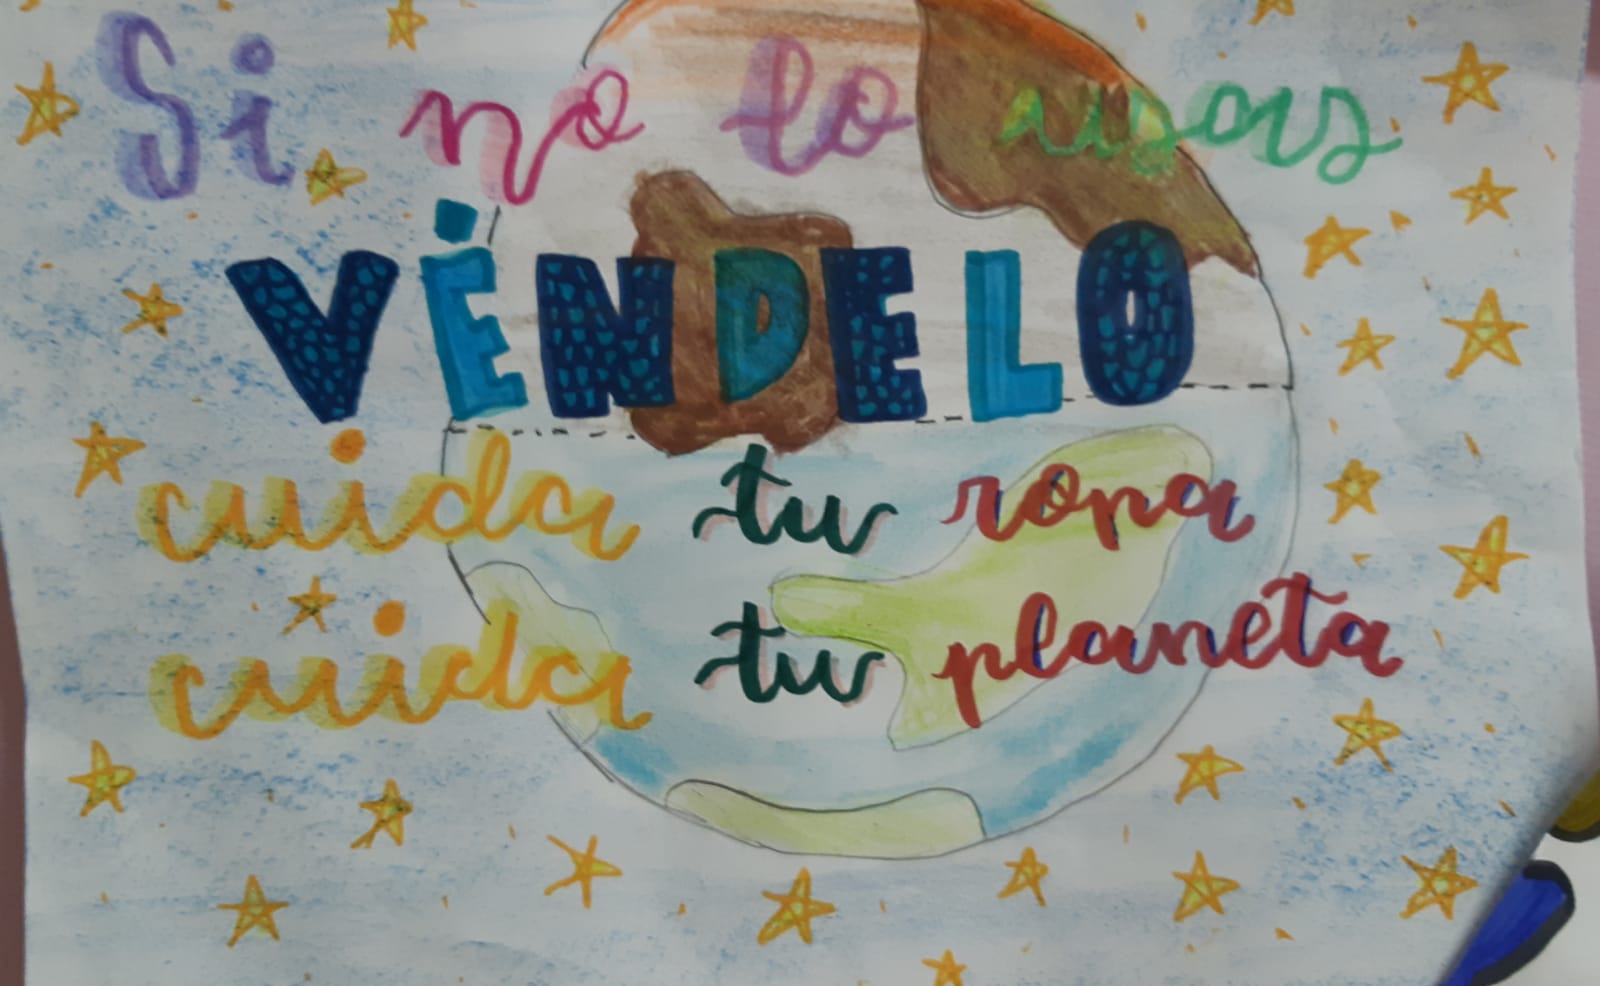 Si no lo usas
VÉNDELO
cuida tu ropa
cuida tu planeta